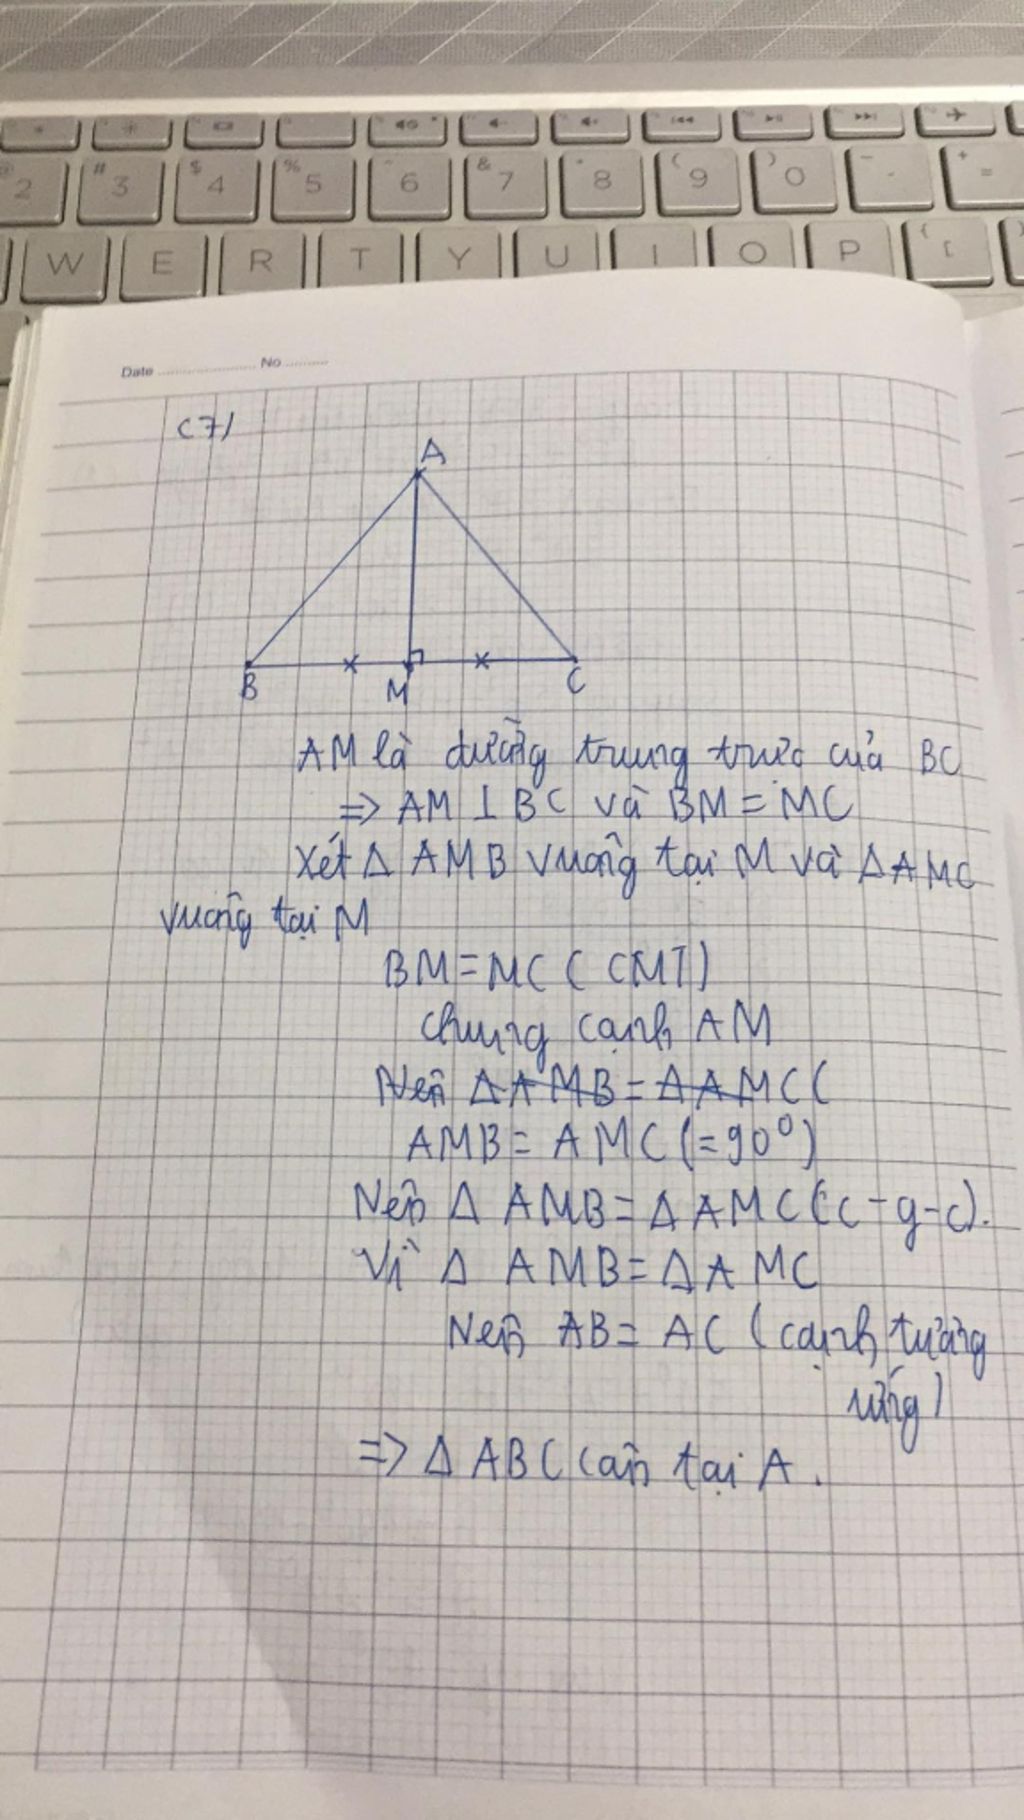 # $ % ^ & * ( ) - +
2 3 4 5 6 7 8 9 0 - =
W E R T Y U I O P { [
Date No
C7/
A
B M C
AM là đường trung trực của BC
=> AM ⊥ BC và BM = MC
Xét Δ AMB vuông tại M và Δ AMC
vuông tại M
BM = MC ( CMT)
chung cạnh AM
Nên Δ AMB = Δ AMC (
AMB = AMC (= 90°)
Nên Δ AMB = Δ AMC (c - g - c).
Vì Δ AMB = Δ AMC
Nên AB = AC ( cạnh tương
ứng)
=> Δ ABC cân tại A.